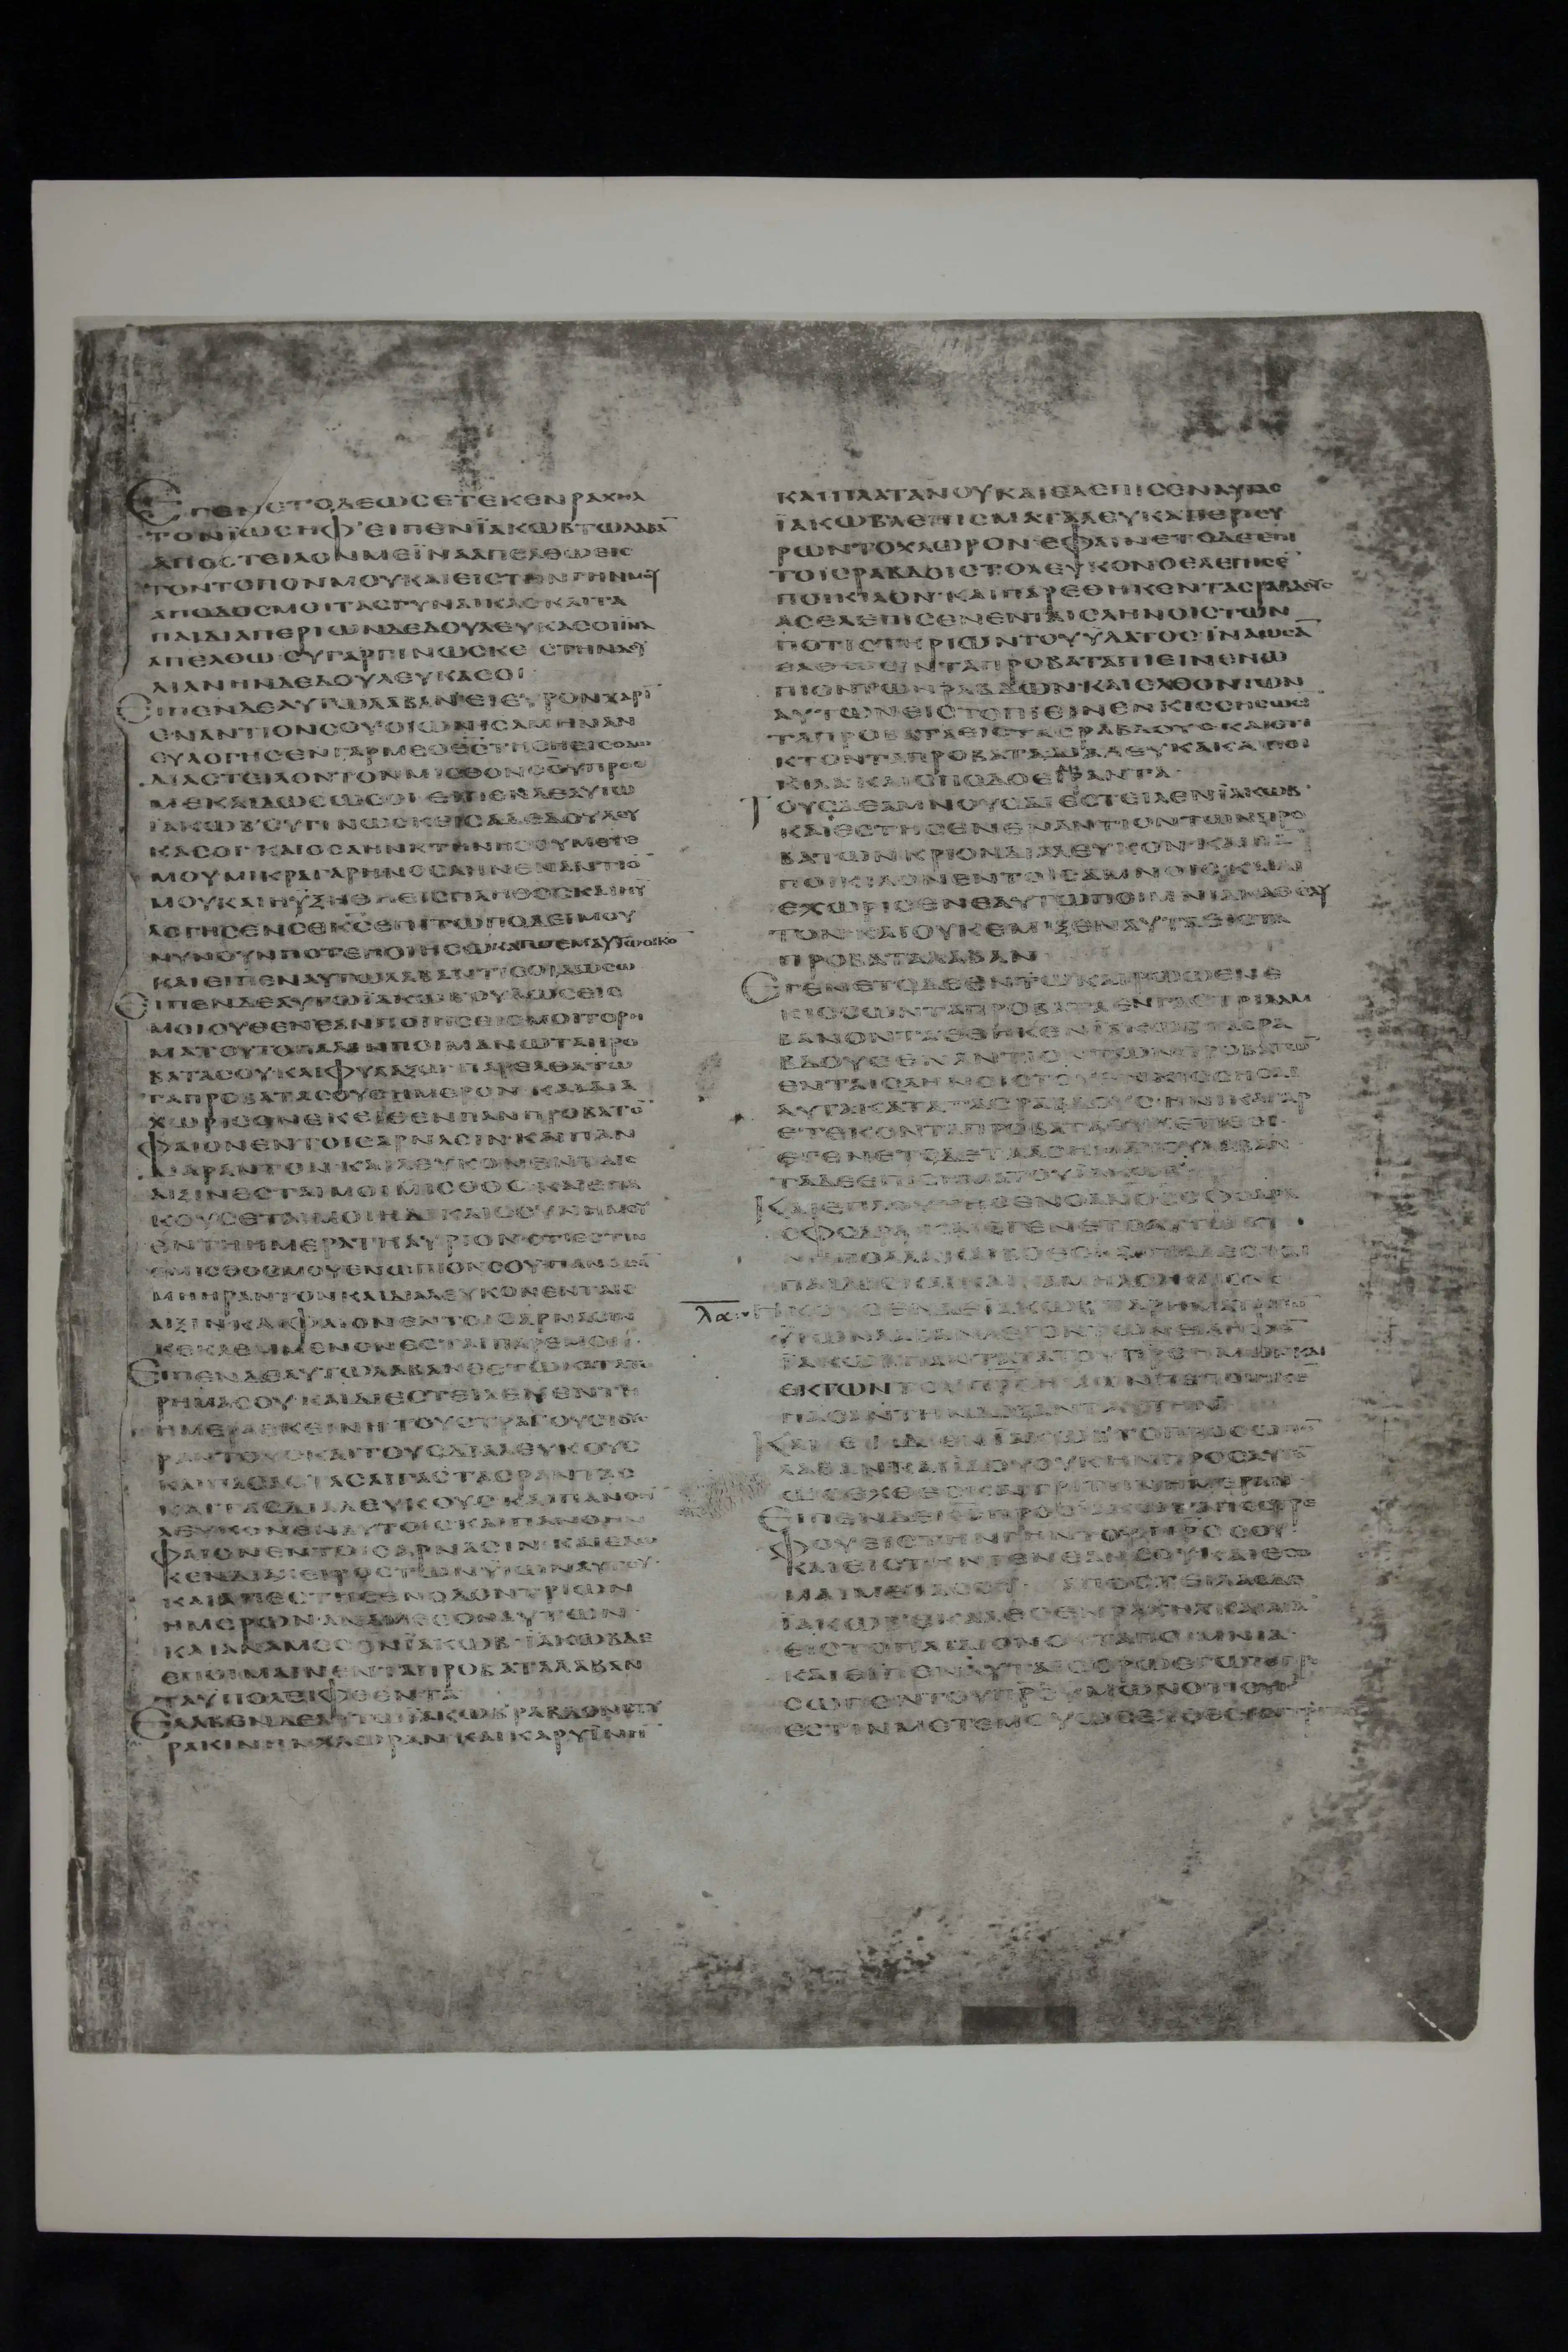 ΕΓΕΝΕΤΟΔΕΩCΕΤΕΚΕΝΡΑΧΗΛ
ΤΟΝΪΩCΗΦ·ΕΙΠΕΝΪΑΚΩΒΤΩΛΑΒΑ̅
ΑΠΟCΤΕΙΛΟΝΜΕΪΝΑΑΠΕΛΘΩΕΙC
ΤΟΝΤΟΠΟΝΜΟΥΚΑΙΕΙCΤΗΝΓΗΝΜΟΥ
ΑΠΟΔΟCΜΟΙΤΑCΓΥΝΑΙΚΑCΚΑΙΤΑ
ΠΑΙΔΙΑΠΕΡΙΩΝΔΕΔΟΥΛΕΥΚΑCΟΙΪΝΑ
ΑΠΕΛΘΩ·CΥΓΑΡΓΙΝΩCΚΕ CΤΗΝΔΟΥ
ΛΙΑΝΗΝΔΕΔΟΥΛΕΥΚΑCΟΙ
ΕΙΠΕΝΔΕΑΥΤΩΛΑΒΑΝ·ΕΙΕΥΡΟΝΧΑΡΙ̅
ΕΝΑΝΤΙΟΝCΟΥ·ΟΙΩΝΙCΑΜΗΝΑΝ
ΕΥΛΟΓΗCΕΝΓΑΡΜΕΟΘ̅C̅ΤΗCΗΕΙCΟΔΩ
ΔΙΑCΤΕΙΛΟΝΤΟΝΜΙCΘΟΝCΟΥΠΡΟC
ΜΕΚΑΙΔΩCΩCΟΙ·ΕΙΠΕΝΔΕΑΥΤΩ
ΪΑΚΩΒ·CΥΓΙΝΩCΚΕΙCΑΔΕΔΟΥΛΕΥ
ΚΑCΟΙ·ΚΑΙΟCΑΗΝΚΤΗΝΗCΟΥΜΕΤΕ
ΜΟΥΜΙΚΡΑΓΑΡΗΝΟCΑΗΝΕΝΑΝΤΙΟ̅
ΜΟΥΚΑΙΗΥΞΗΘΗΕΙCΠΛΗΘΟCΚΑΙΗΥ
ΛΟΓΗCΕΝCΕΚ̅C̅ΕΠΙΤΩΠΟΔΕΙΜΟΥ
ΝΥΝΟΥΝΠΟΤΕΠΟΙΗCΩΚΑΓΩΕΜΑΥΤΩΟΙΚΟ̅
ΚΑΙΕΙΠΕΝΑΥΤΩΛΑΒΑΝΤΙCΟΙΔΩCΩ
ΕΙΠΕΝΔΕΑΥΤΩΪΑΚΩΒ·ΟΥΔΩCΕΙC
ΜΟΙΟΥΘΕΝ·ΕΑΝΠΟΙΗCΕΙCΜΟΙΤΟΡΗ
ΜΑΤΟΥΤΟΠΑΛΙΝΠΟΙΜΑΝΩΤΑΠΡΟ
ΒΑΤΑCΟΥΚΑΙΦΥΛΑΞΩ·ΠΑΡΕΛΘΑΤΩ
ΤΑΠΡΟΒΑΤΑCΟΥCΗΜΕΡΟΝ·ΚΑΙΔΙΑ
ΧΩΡΙCΟΝΕΚΕΙΘΕΝΠΑΝΠΡΟΒΑΤΟ̅
ΦΑΙΟΝΕΝΤΟΙCΑΡΝΑCΙΝ·ΚΑΙΠΑΝ
ΔΙΑΡΑΝΤΟΝ·ΚΑΙΛΕΥΚΟΝΕΝΤΑΙC
ΑΙΞΙΝΕCΤΑΙΜΟΙΜΙCΘΟC·ΚΑΙΕΠΑ
ΚΟΥCΕΤΑΙΜΟΙΗΔΙΚΑΙΟCΥΝΗΜΟΥ
ΕΝΤΗΗΜΕΡΑΤΗΑΥΡΙΟΝ·ΟΤΙΕCΤΙΝ
ΟΜΙCΘΟCΜΟΥΕΝΩΠΙΟΝCΟΥ·ΠΑΝΟΕΑ̅
ΜΗΗΡΑΝΤΟΝΚΑΙΔΙΑΛΕΥΚΟΝΕΝΤΑΙC
ΑΙΞΙΝ·ΚΑΙΦΑΙΟΝΕΝΤΟΙCΑΡΝΑCΙΝ
ΚΕΚΛΕΜΜΕΝΟΝΕCΤΑΙΠΑΡΕΜΟΙ·
ΕΙΠΕΝΔΕΑΥΤΩΛΑΒΑΝΕCΤΩΚΑΤΑΤΟ
ΡΗΜΑCΟΥ·ΚΑΙΔΙΕCΤΕΙΛΕΝΕΝΤΗ
ΗΜΕΡΑΕΚΕΙΝΗΤΟΥCΤΡΑΓΟΥCΤΟΥC
ΡΑΝΤΟΥCΚΑΙΤΟΥCΔΙΑΛΕΥΚΟΥC
ΚΑΙΠΑCΑCΤΑCΑΙΓΑCΤΑCΡΑΝΤΑC
ΚΑΙΤΑCΔΙΑΛΕΥΚΟΥC·ΚΑΙΠΑΝΟΗΝ
ΛΕΥΚΟΝΕΝΑΥΤΟΙCΚΑΙΠΑΝΟΗΝ
ΦΑΙΟΝΕΝΤΟΙCΑΡΝΑCΙΝ·ΚΑΙΕΔΩ
ΚΕΝΔΙΑΧΕΙΡΟCΤΩΝΥΪΩΝΑΥΤΟΥ·
ΚΑΙΑΠΕCΤΗCΕΝΟΔΟΝΤΡΙΩΝ
ΗΜΕΡΩΝ·ΑΝΑΜΕCΟΝΑΥΤΩΝ·
ΚΑΙΑΝΑΜΕCΟΝΪΑΚΩΒ·ΪΑΚΩΒΔΕ
ΕΠΟΙΜΑΙΝΕΝΤΑΠΡΟΒΑΤΑΛΑΒΑΝ
ΤΑΥΠΟΛΕΙΦΘΕΝΤΑ
ΕΛΑΒΕΝΔΕΑΥΤΩΪΑΚΩΒΡΑΒΔΟΝCΤΥ
ΡΑΚΙΝΗΝΧΛΩΡΑΝ·ΚΑΙΚΑΡΥΪΝΗ̅
ΚΑΙΠΛΑΤΑΝΟΥΚΑΙΕΛΕΠΙCΕΝΑΥΤΑC
ΪΑΚΩΒΛΕΠΙCΜΑΤΑΛΕΥΚΑΠΕΡΙCΥ
ΡΩΝΤΟΧΛΩΡΟΝ·ΕΦΑΙΝΕΤΟΔΕΕΠΙ
ΤΟΙCΡΑΒΔΟΙCΤΟΛΕΥΚΟΝΟΕΛΕΠΙCΕ̅
ΠΟΙΚΙΛΟΝ·ΚΑΙΠΑΡΕΘΗΚΕΝΤΑCΡΑΒΔΟΥC
ΑCΕΛΕΠΙCΕΝΕΝΤΑΙCΛΗΝΟΙCΤΩΝ
ΠΟΤΙCΤΗΡΙΩΝΤΟΥΥΔΑΤΟC·ΪΝΑΩCΑ̅
ΕΛΘΩCΙΝΤΑΠΡΟΒΑΤΑΠΙΕΙΝΕΝΩ
ΠΙΟΝΤΩΝΡΑΒΔΩΝ·ΚΑΙΕΛΘΟΝΤΩΝ
ΑΥΤΩΝΕΙCΤΟΠΙΕΙΝΕΝΚΙCCΗCΩCΙ
ΤΑΠΡΟΒΑΤΑΕΙCΤΑCΡΑΒΔΟΥC·ΚΑΙΕΤΙ
ΚΤΟΝΤΑΠΡΟΒΑΤΑΔΙΑΛΕΥΚΑΚΑΙΠΟΙ
ΚΙΛΑΚΑΙCΠΟΔΟΕΙΔΗΡΑΝΤΑ·
ΤΟΥCΔΕΑΜΝΟΥCΔΙΕCΤΕΙΛΕΝΪΑΚΩΒ·
ΚΑΙΕCΤΗCΕΝΕΝΑΝΤΙΟΝΤΩΝΠΡΟ
ΒΑΤΩΝΚΡΙΟΝΔΙΑΛΕΥΚΟΝ·ΚΑΙΠΑ̅
ΠΟΙΚΙΛΟΝΕΝΤΟΙCΑΜΝΟΙC·ΚΑΙΔΙ
ΕΧΩΡΙCΕΝΕΑΥΤΩΠΟΙΜΝΙΑΚΑΘΕΑΥ
ΤΟΝ·ΚΑΙΟΥΚΕΜΙΞΕΝΑΥΤΑΕΙCΤΑ
ΠΡΟΒΑΤΑΛΑΒΑΝ
ΕΓΕΝΕΤΟΔΕΕΝΤΩΚΑΙΡΩΩΕΝΕ
ΚΙCCΩΝΤΑΠΡΟΒΑΤΑΕΝΓΑCΤΡΙΛΑΜ
ΒΑΝΟΝΤΑΕΘΗΚΕΝΪΑΚΩΒΤΑCΡΑ
ΒΔΟΥCΕΝΑΝΤΙΟΝΤΩΝΠΡΟΒΑΤΩ̅
ΕΝΤΑΙCΛΗΝΟΙCΤΟΥΕΝΚΙCCΗCΑΙ
ΑΥΤΑΚΑΤΑΤΑCΡΑΒΔΟΥC·ΗΝΙΚΑΓΑΡ
ΕΤΕΚΟΝΤΑΠΡΟΒΑΤΑΟΥΚΕΤΙΘΕΙ·
ΕΓΕΝΕΤΟΔΕΤΑΑCΗΜΑΤΟΥΛΑΒΑΝ
ΤΑΔΕΕΠΙCΗΜΑΤΟΥΪΑΚΩΒ
ΚΑΙΕΠΛΟΥΤΗCΕΝΟΑΝΟCCΦΟΔΡΑ
CΦΟΔΡΑ·ΚΑΙΕΓΕΝΕΤΟΑΥΤΩΚΤΗ
λα
ΗΚΟΥCΕΝΔΕΪΑΚΩΒΤΑΡΗΜΑΤΑΤΩ̅
ΥΪΩΝΛΑΒΑΝΛΕΓΟΝΤΩΝΕΙΛΗΦΕ̅
ΪΑΚΩΒΠΑΝΤΑΤΑΤΟΥΠΡ̅C̅ΗΜΩΝ·ΚΑΙ
ΕΚΤΩΝΤΟΥΠΡ̅C̅ΗΜΩΝΠΕΠΟΙΗΚΕ
ΠΑCΑΝΤΗΝΔΟΞΑΝΤΑΥΤΗΝ
ΚΑΙΕΙΔΕΝΪΑΚΩΒΤΟΠΡΟCΩΠΟ̅
ΛΑΒΑΝΚΑΙΪΔΟΥΟΥΚΗΝΠΡΟCΑΥΤΟ̅
ΩCΕΧΘΕCΚΑΙΤΡΙΤΗΝΗΜΕΡΑΝ
ΕΙΠΕΝΔΕΚ̅C̅ΠΡΟCΪΑΚΩΒΑΠΟCΤΡΕ
ΦΟΥΕΙCΤΗΝΓΗΝΤΟΥΠΡ̅C̅CΟΥ·
ΚΑΙΕΙCΤΗΝΓΕΝΕΑΝCΟΥΚΑΙΕCΟ
ΜΑΙΜΕΤΑCΟΥ· ΑΠΟCΤΕΙΛΑCΔΕ
ΪΑΚΩΒ·ΕΚΑΛΕCΕΝΡΑΧΗΛΚΑΙΛΕΙΑ̅
ΕΙCΤΟΠΕΔΙΟΝΟΥΤΑΠΟΙΜΝΙΑ·
ΚΑΙΕΙΠΕΝΑΥΤΑΙCΟΡΩΕΓΩΤΟΠΡ
CΩΠΟΝΤΟΥΠΡ̅C̅ΥΜΩΝΟΤΙΟΥΚ